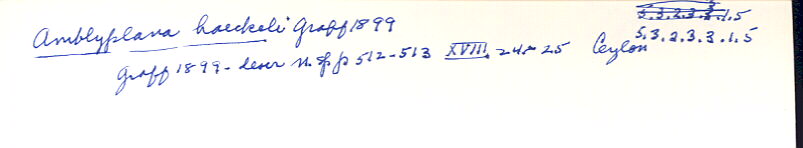 5.3.2.3.3.1.5
Amblyplana haeckeli Graff 1899 5.3.2.3.3.1.5
Graff 1899 - descr n. sp p 512-513 XVIII. 24-25 Ceylon